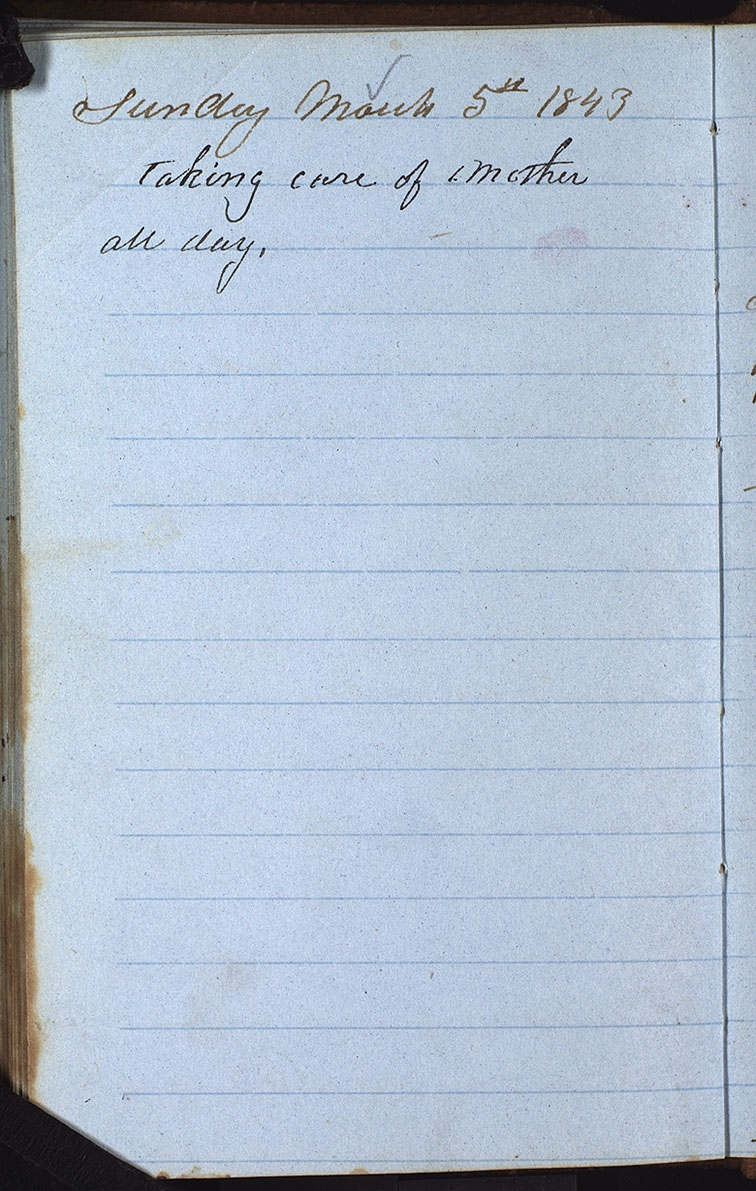 Sunday March 5th 1843
Taking care of Mother
all day,